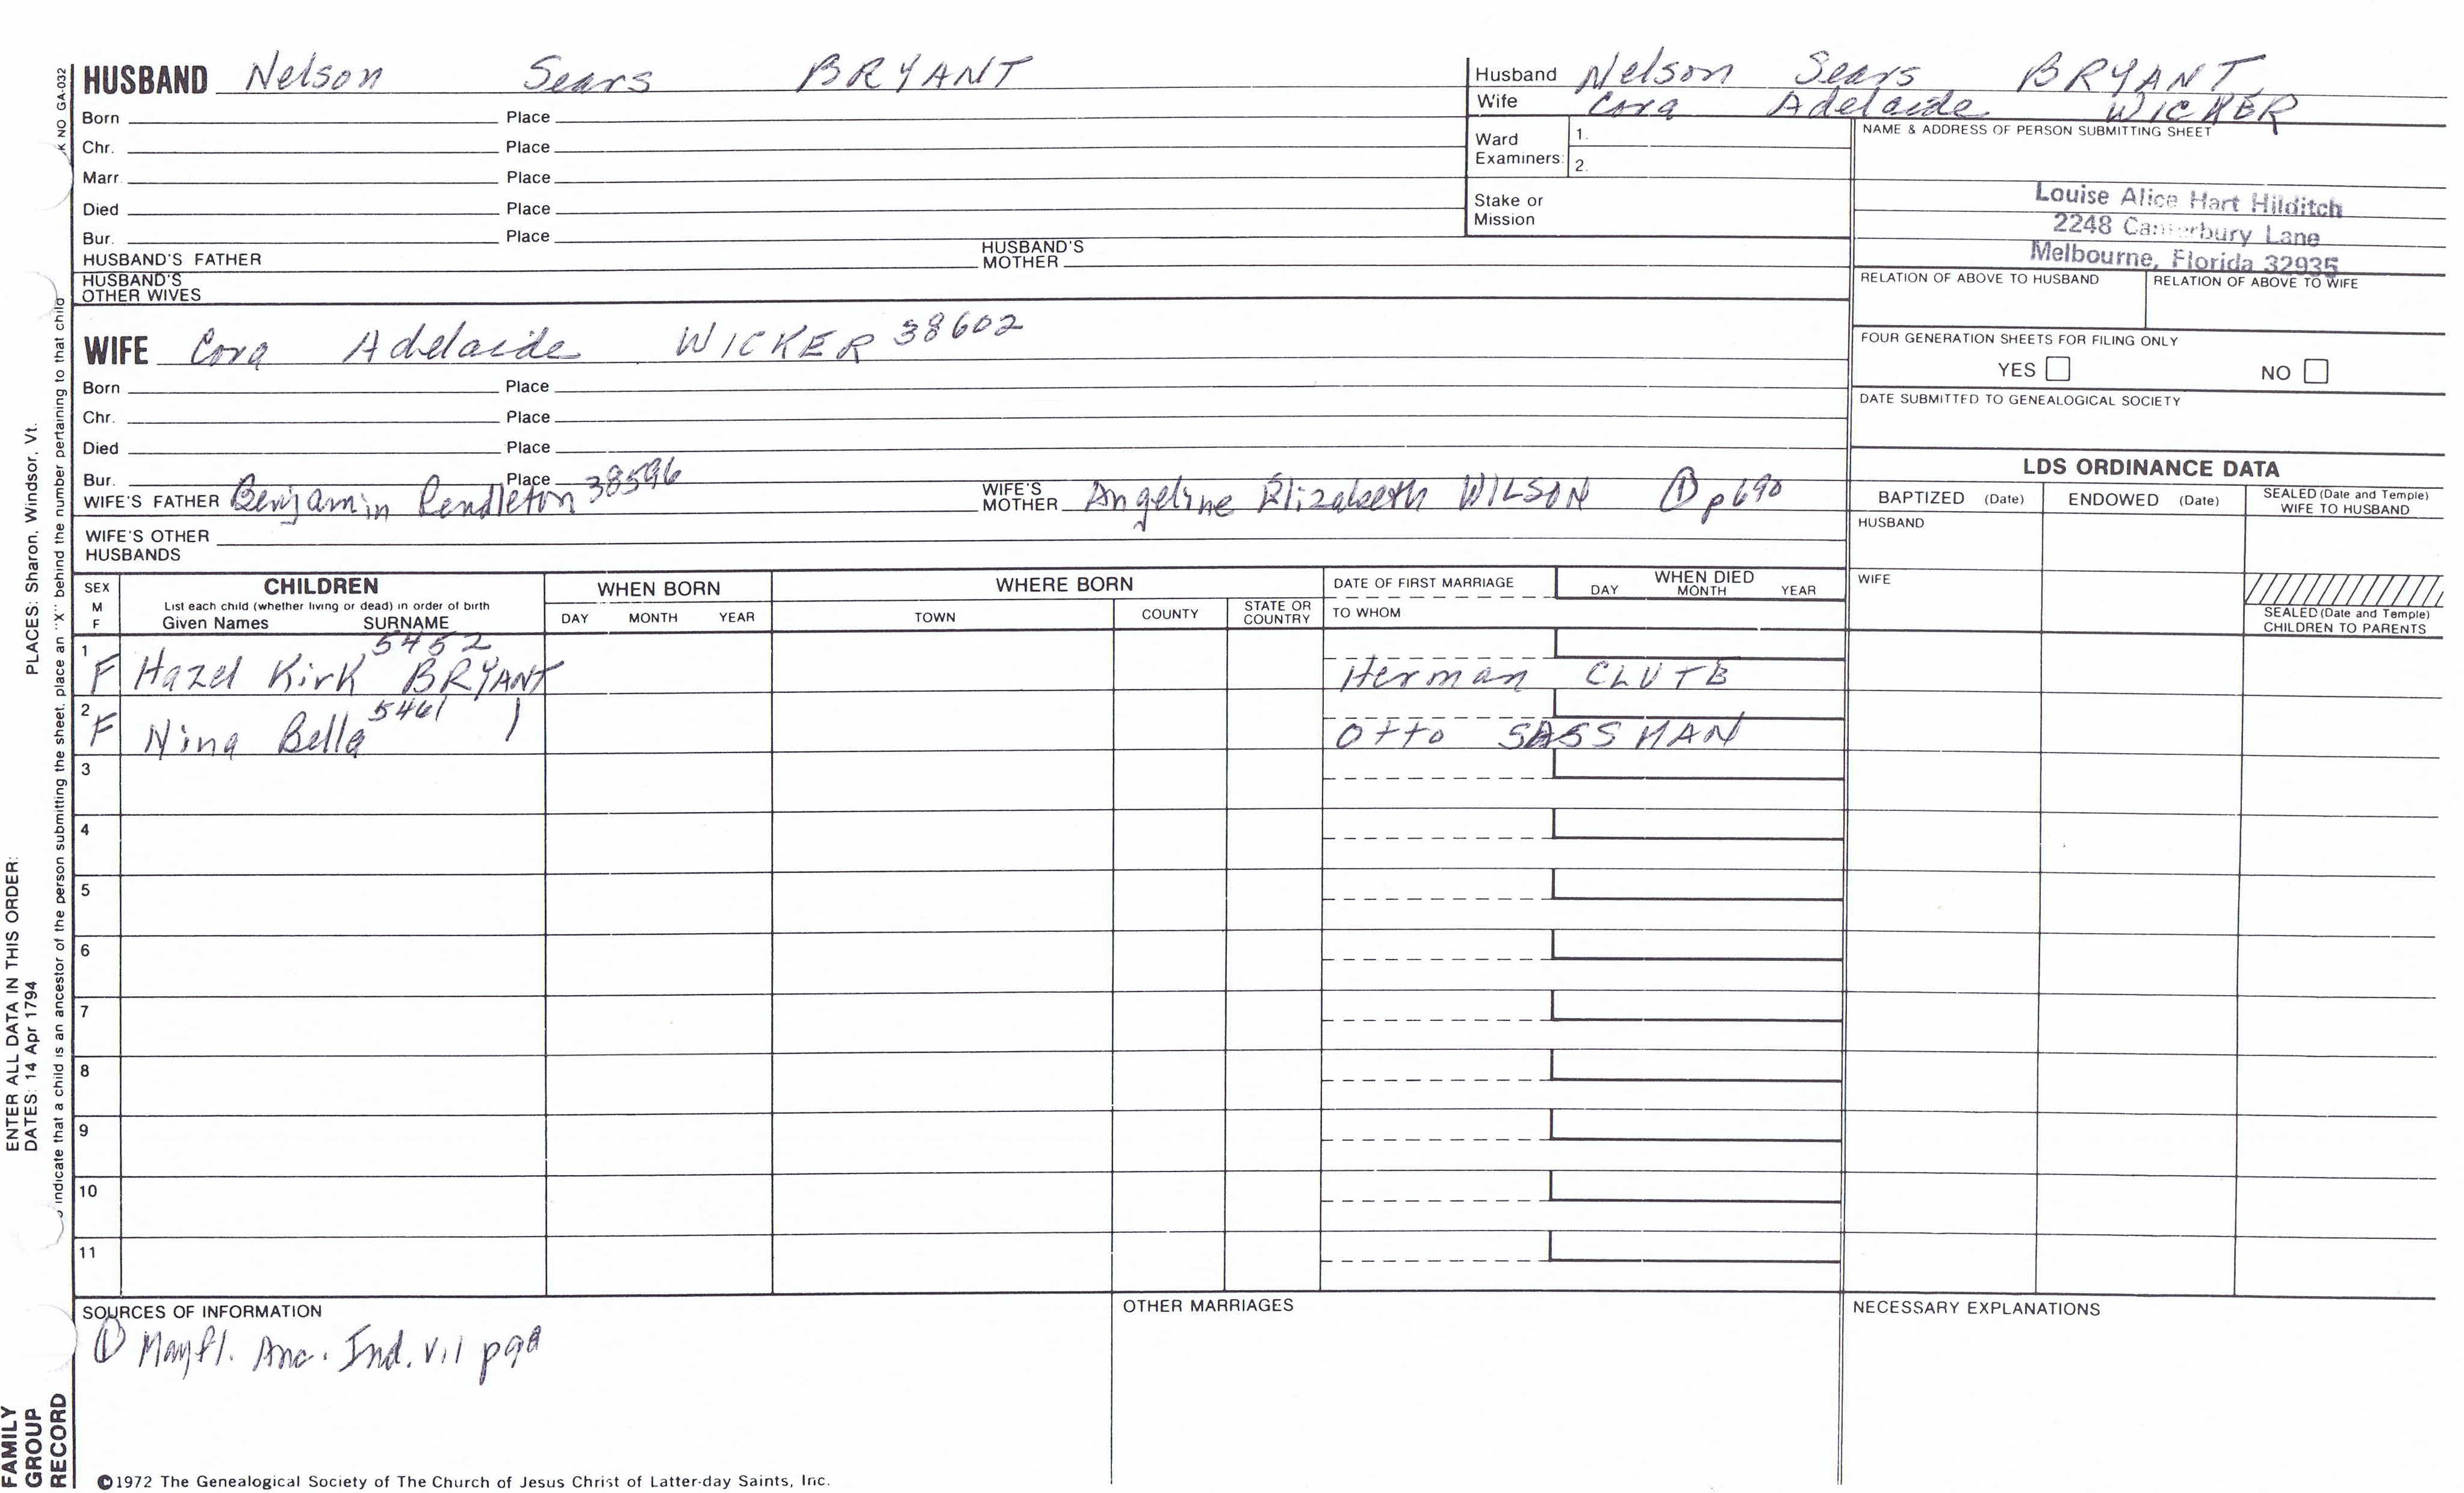 K NO GA-032
HUSBAND Nelson Sears BRYANT
Born Place
Chr. Place
Marr. Place
Died Place
Bur. Place
HUSBAND'S FATHER HUSBAND'S MOTHER
HUSBAND'S OTHER WIVES
Husband Nelson Sears BRYANT
Wife Cora Adelaide WICKER
Ward Examiners: 1.
2.
Stake or Mission
NAME & ADDRESS OF PERSON SUBMITTING SHEET
Louise Alice Hart Hilditch
2248 Canterbury Lane
Melbourne, Florida 32935
RELATION OF ABOVE TO HUSBAND RELATION OF ABOVE TO WIFE
FOUR GENERATION SHEETS FOR FILING ONLY
YES NO
DATE SUBMITTED TO GENEALOGICAL SOCIETY
WIFE Cora Adelaide WICKER 38602
Born Place
Chr. Place
Died Place
Bur. Place
WIFE'S FATHER Benjamin Pendleton 38596 WIFE'S MOTHER Angeline Elizabeth WILSON ① p690
WIFE'S OTHER HUSBANDS
LDS ORDINANCE DATA
BAPTIZED (Date) ENDOWED (Date) SEALED (Date and Temple) WIFE TO HUSBAND
HUSBAND
WIFE
SEALED (Date and Temple) CHILDREN TO PARENTS
SEX M F
CHILDREN
List each child (whether living or dead) in order of birth
Given Names SURNAME
WHEN BORN
DAY MONTH YEAR
WHERE BORN
TOWN COUNTY STATE OR COUNTRY
DATE OF FIRST MARRIAGE
TO WHOM
WHEN DIED
DAY MONTH YEAR
1 F Hazel Kirk BRYANT 5452 Herman CLUTE
2 F Nina Bella 5461 ) Otto SASSMAN
3
4
5
6
7
8
9
10
11
SOURCES OF INFORMATION
① Mayfl. Anc. Ind. v11 p99
OTHER MARRIAGES
NECESSARY EXPLANATIONS
©1972 The Genealogical Society of The Church of Jesus Christ of Latter-day Saints, Inc.
ENTER ALL DATA IN THIS ORDER:
DATES: 14 Apr 1794 PLACES: Sharon, Windsor, Vt.
indicate that a child is an ancestor of the person submitting the sheet, place an "X" behind the number pertaining to that child
FAMILY
GROUP
RECORD